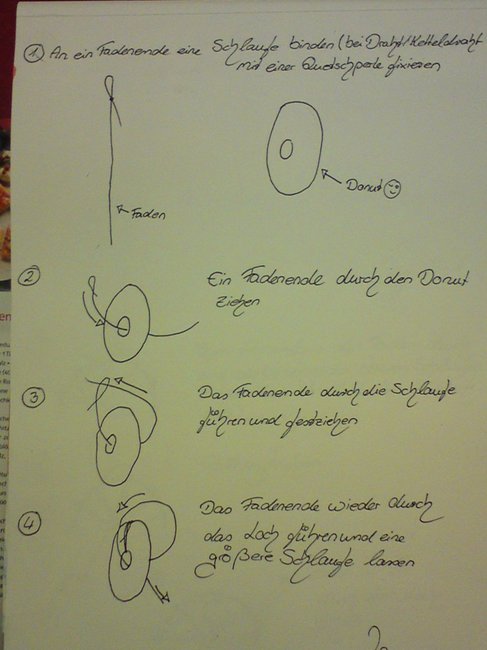 ① An ein Fadenende eine Schlaufe binden (bei Draht/Ketteldraht
mit einer Quetschperle fixieren
Faden
Donut
② Ein Fadenende durch den Donut
ziehen
③ Das Fadenende durch die Schlaufe
führen und festziehen
④ Das Fadenende wieder durch
das Loch führen und eine
größere Schlaufe lassen